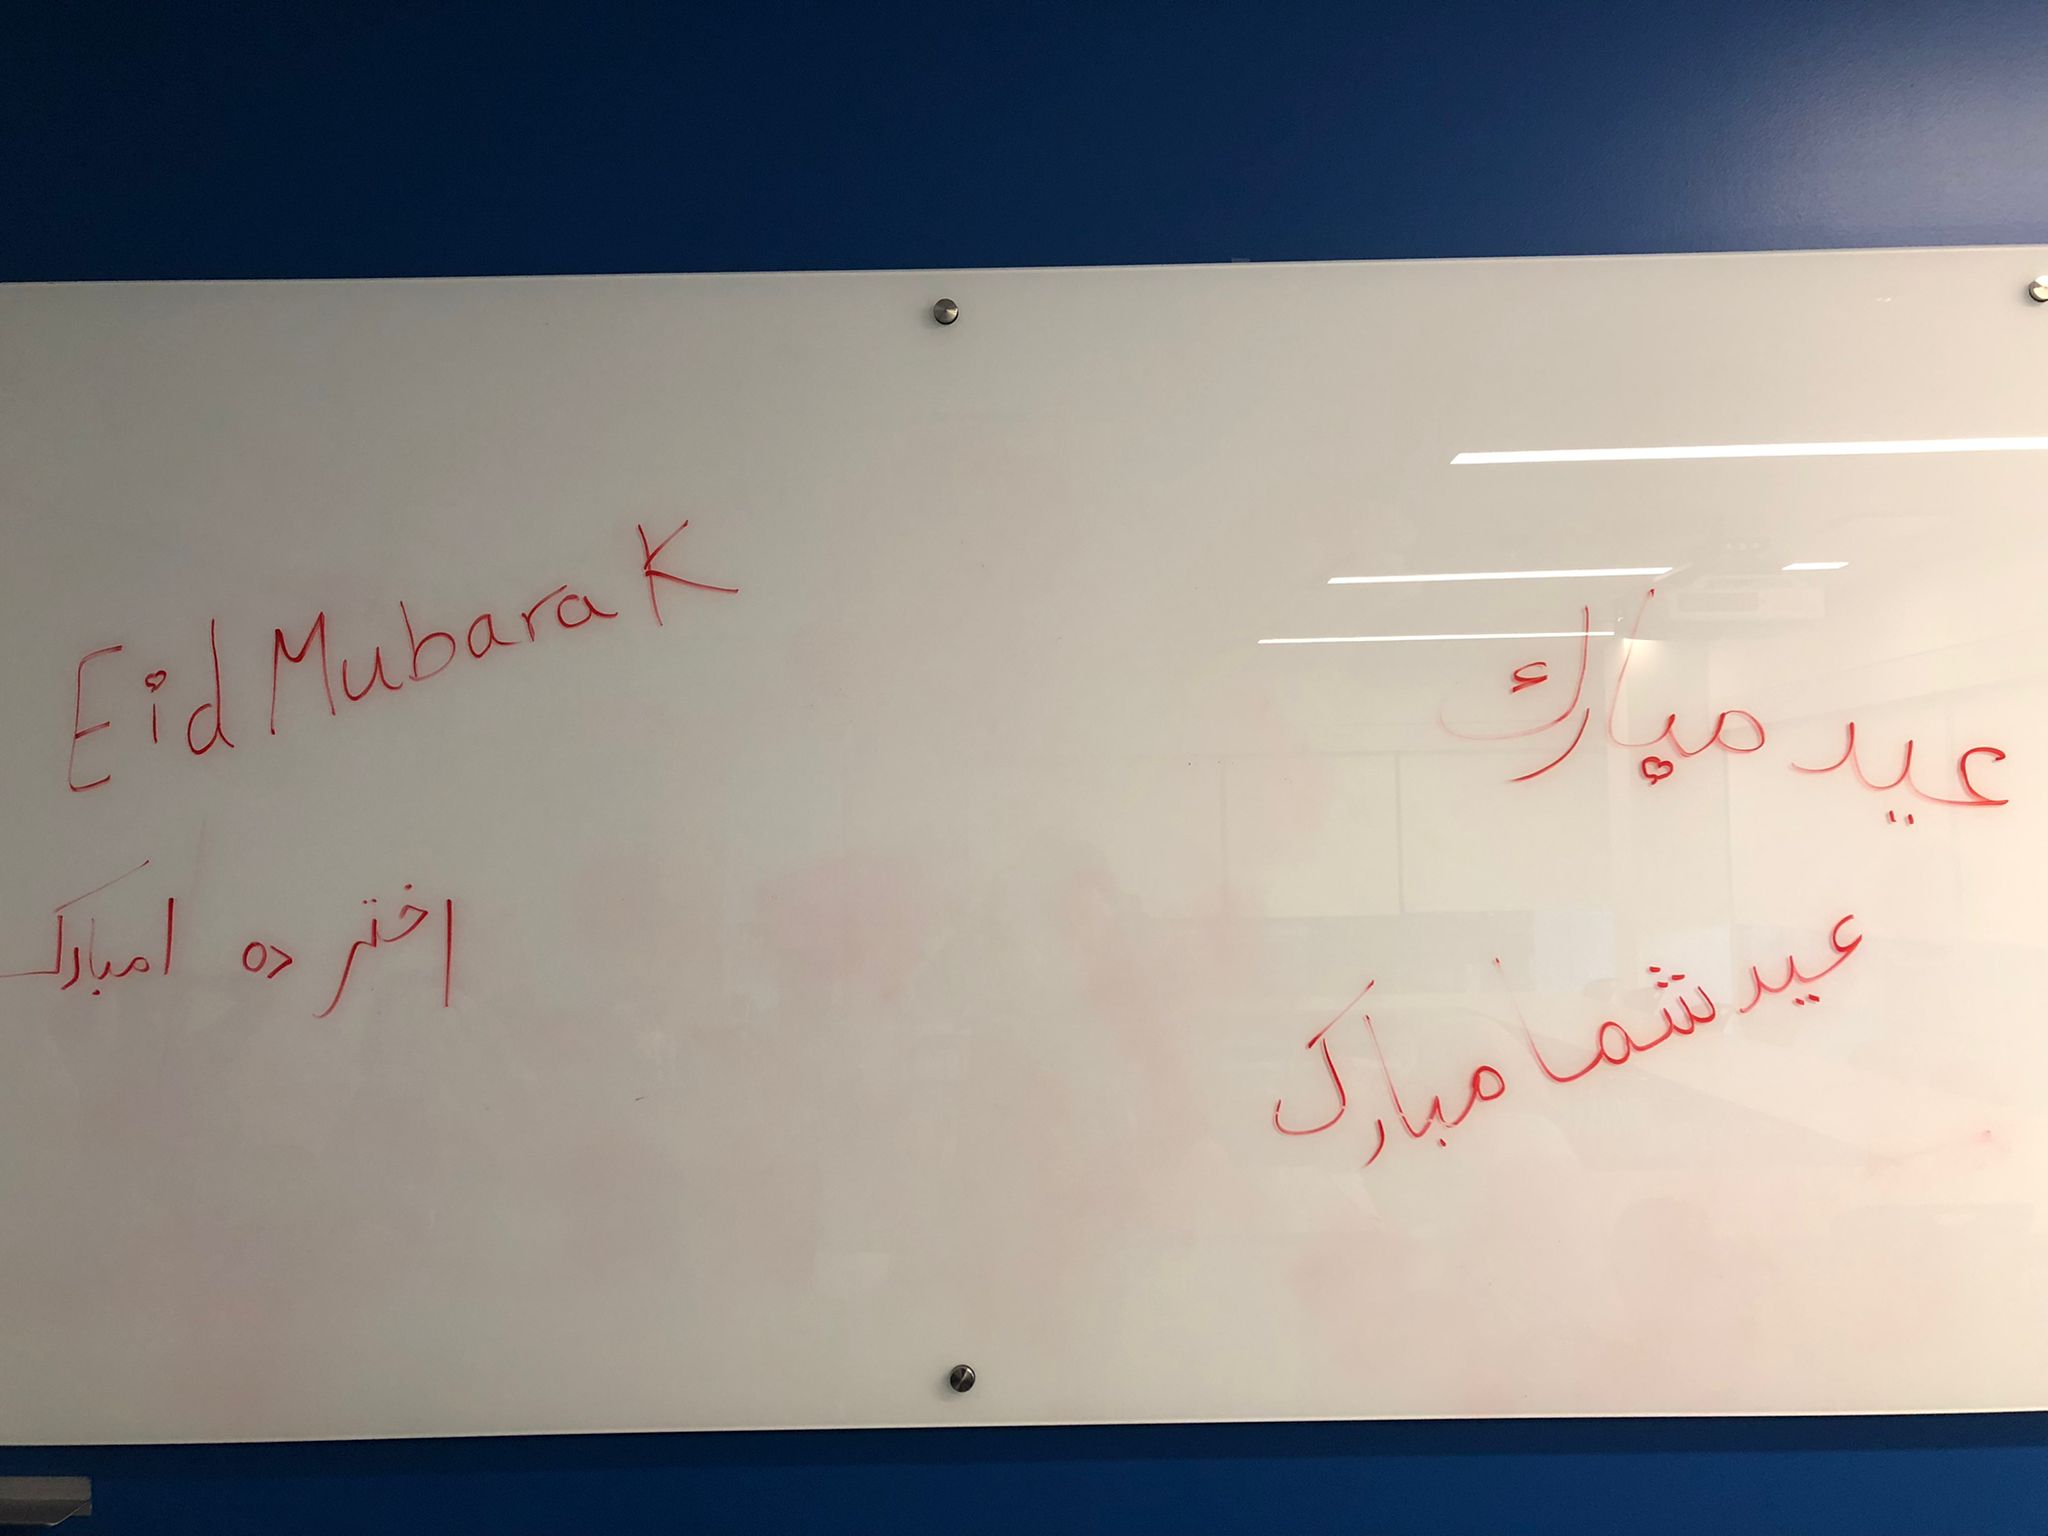 Eid Mubarak
عيد مبارك
اختر ده امبارک
عید شما مبارک